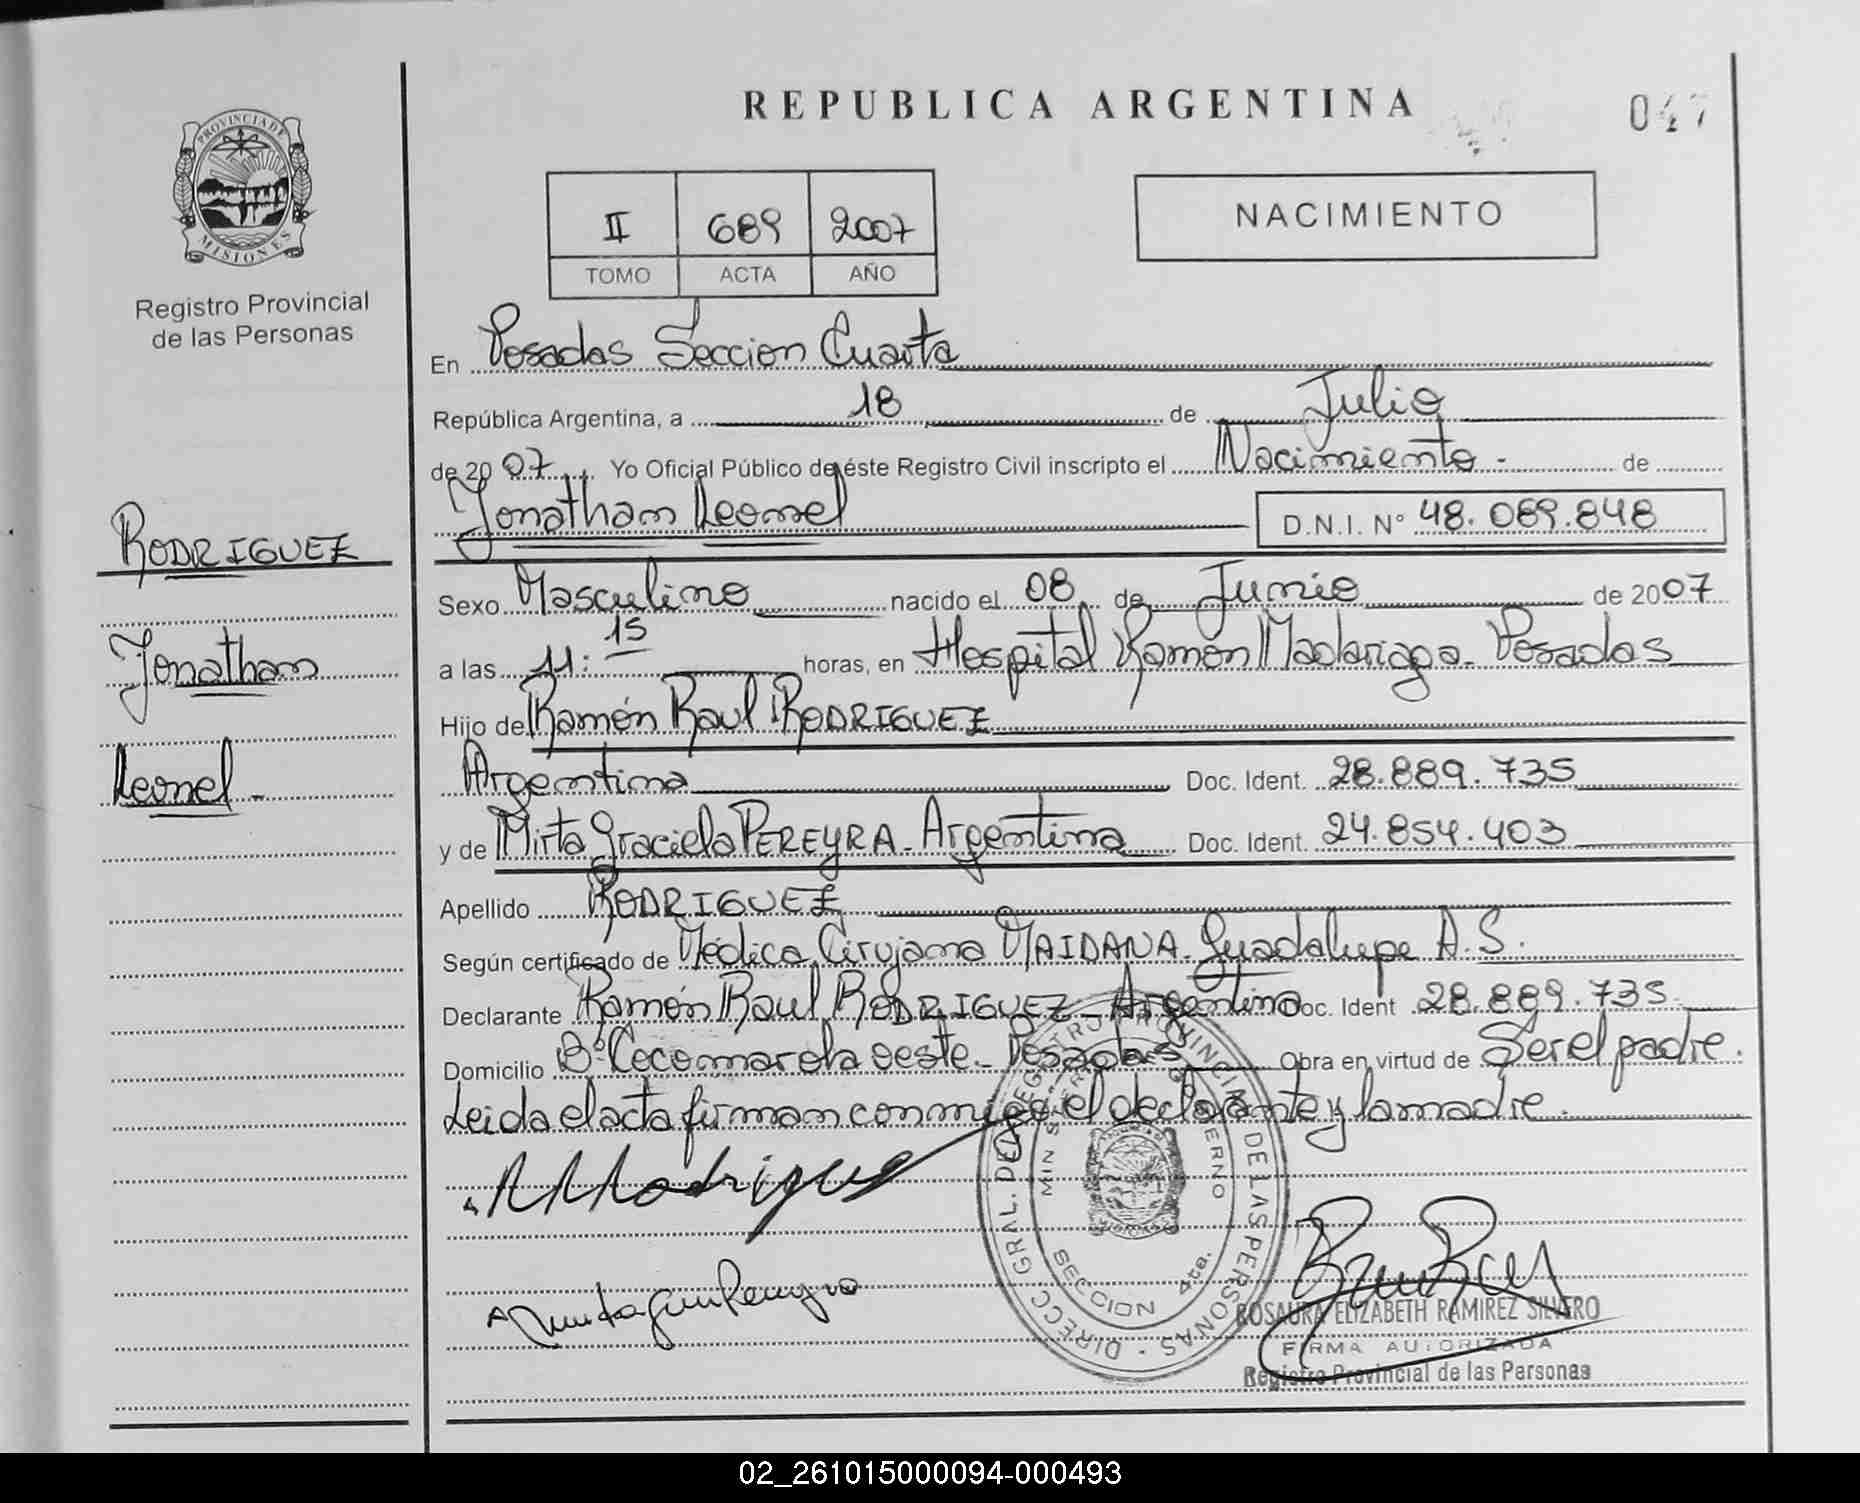 REPUBLICA ARGENTINA
047
PROVINCIA DE
MISIONES
Registro Provincial
de las Personas
II 689 2007
TOMO ACTA AÑO
NACIMIENTO
En Posadas Seccion Cuarta
República Argentina, a 18 de Julio
de 2007. Yo Oficial Público de éste Registro Civil inscripto el Nacimiento - de
Jonathan Leonel D.N.I. N° 48.089.848
RODRIGUEZ
Jonathan
Leonel -
Sexo Masculino nacido el 08 de Junio de 2007
a las 11:15 horas, en Hospital Ramón Madariaga - Posadas
Hijo de Ramón Raul RODRIGUEZ
Argentina Doc. Ident. 28.889.735
y de Mirta Graciela PEREYRA - Argentina Doc. Ident. 24.854.403
Apellido RODRIGUEZ
Según certificado de Médica Cirujana MAIDANA - Guadalupe A. S.
Declarante Ramón Raul RODRIGUEZ - Argentina Doc. Ident 28.889.735
Domicilio B° Cocomarola oeste - Posadas Obra en virtud de Ser el padre.
Leida el acta firman conmigo el declarante y la madre.
DIRECC. GRAL. DEL REGISTRO PROVINCIAL DE LAS PERSONAS
SECCION 4ta.
ROSAURA ELIZABETH RAMIREZ SILVERO
FIRMA AUTORIZADA
Registro Provincial de las Personas
02_261015000094-000493